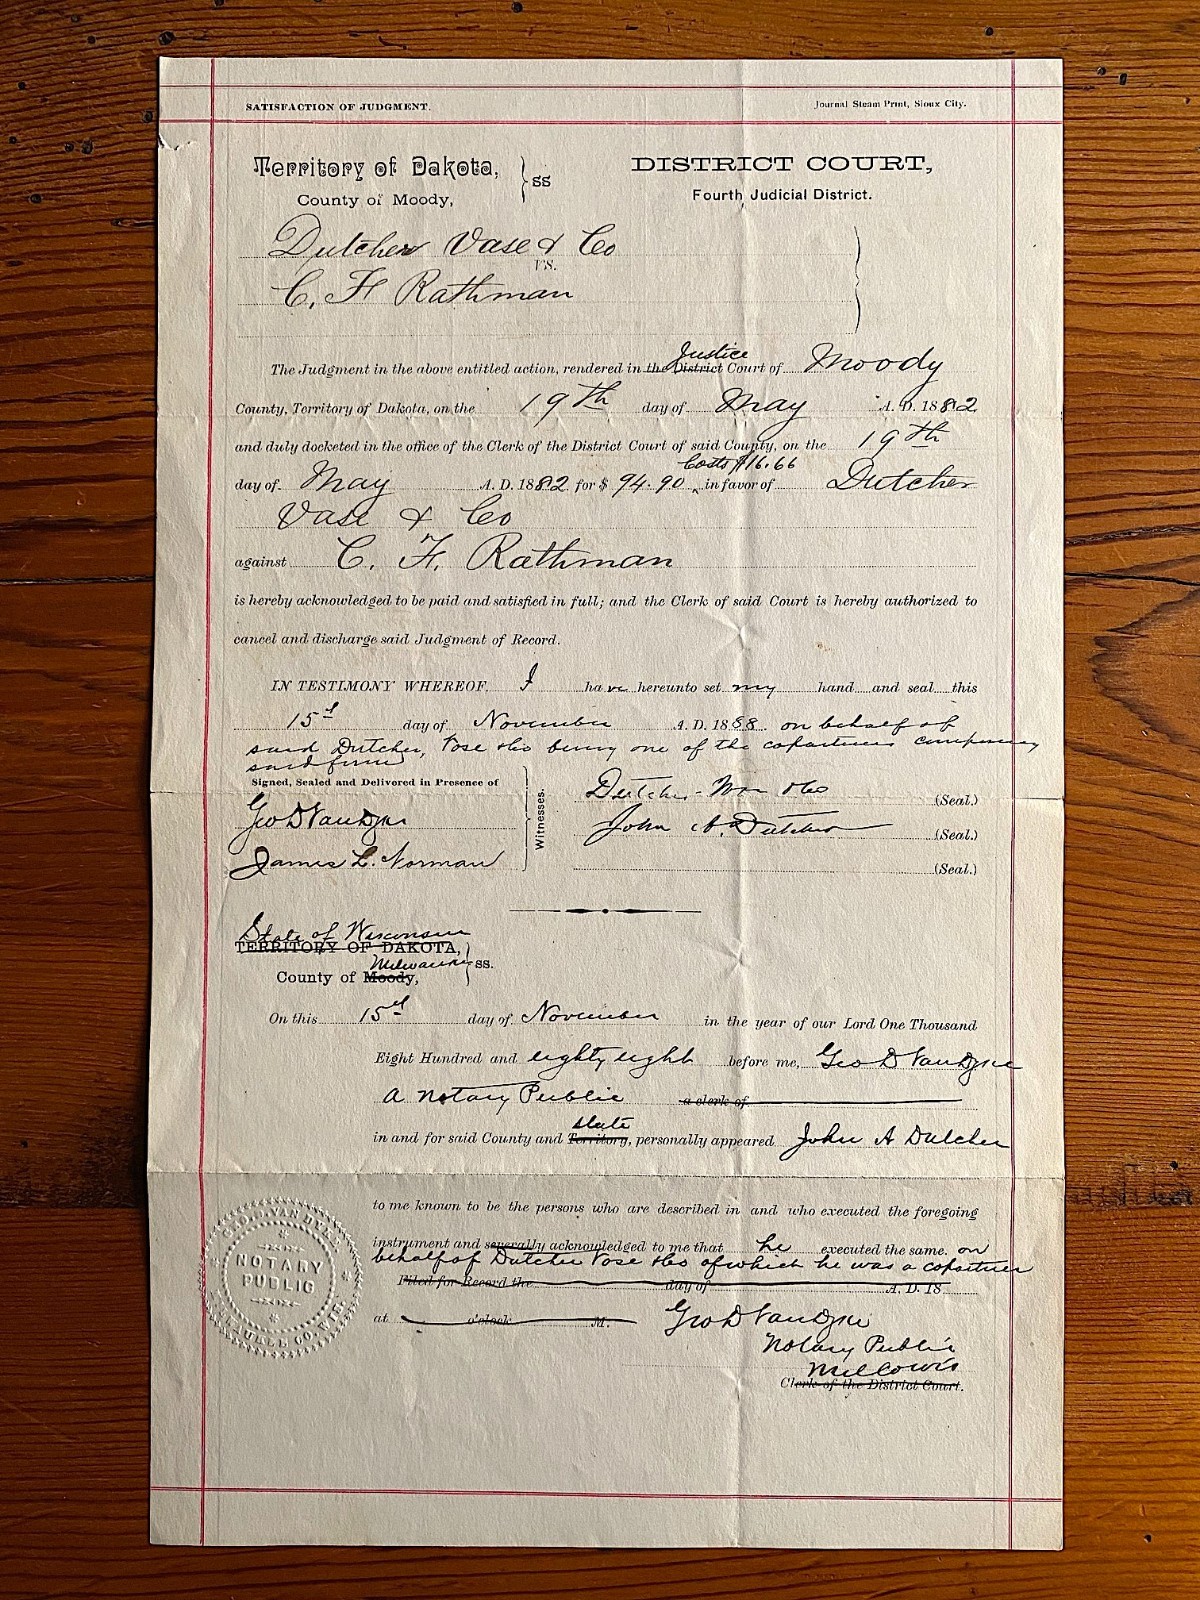 SATISFACTION OF JUDGMENT. Journal Steam Print, Sioux City.
Territory of Dakota, } ss DISTRICT COURT,
County of Moody, Fourth Judicial District.
Dutcher Vase & Co
VS.
C. F. Rathman
Justice
The Judgment in the above entitled action, rendered in the District Court of Moody
County, Territory of Dakota, on the 19th day of May A. D. 1882
and duly docketed in the office of the Clerk of the District Court of said County, on the 19th
Costs $16.66
day of May A. D. 1882 for $ 94.90 in favor of Dutcher
Vase & Co
against C. F. Rathman
is hereby acknowledged to be paid and satisfied in full; and the Clerk of said Court is hereby authorized to
cancel and discharge said Judgment of Record.
IN TESTIMONY WHEREOF, I have hereunto set my hand and seal this
15th day of November A. D. 1888 on behalf of
said Dutcher, Vose & Co being one of the copartners composing
said firm
Signed, Sealed and Delivered in Presence of
Witnesses.
Dutcher & Co (Seal.)
Geo D Van Dyke John A. Dutcher (Seal.)
James L. Norman (Seal.)
State of Wisconsin
TERRITORY OF DAKOTA,
Milwaukee
County of Moody, } ss.
On this 15th day of November in the year of our Lord One Thousand
Eight Hundred and eighty eight before me, Geo D Van Dyke
a Notary Public a clerk of
state
in and for said County and Territory, personally appeared John A Dutcher
to me known to be the persons who are described in and who executed the foregoing
instrument and severally acknowledged to me that he executed the same. on
behalf of Dutcher Vose & Co of which he was a copartner
Filed for Record the day of A. D. 18
at o'clock M. Geo D Van Dyke
Notary Public
Mil Co Wis
Clerk of the District Court.
NOTARY
PUBLIC